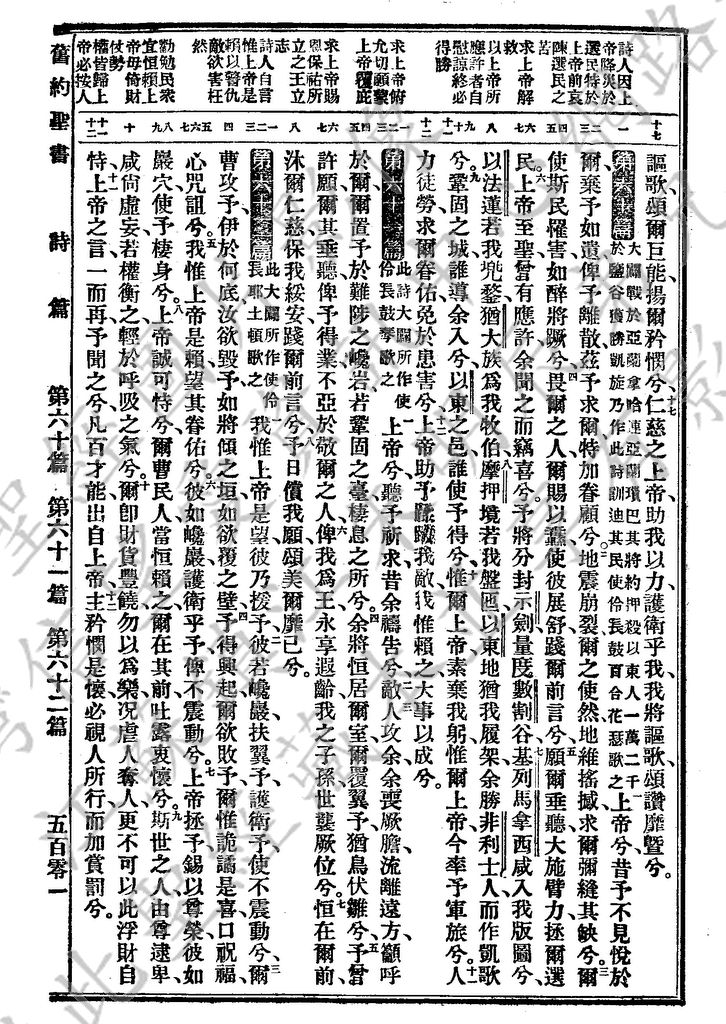 謳歌頌爾巨能揚爾矜憫兮仁慈之上帝助我以力護衛乎我我將謳歌頌讚靡曁兮
第六十篇
大闢戰於亞蘭拿哈連亞蘭瑣巴其將約押殺以東人一萬二千
於鹽谷獲勝凱旋乃作此詩訓迪其民使伶長鼓百合花瑟歌之
上帝兮昔予不見悅於
爾棄予如遺俾予離散茲予求爾特加眷顧兮地震崩裂爾之使然地維搖撼求爾彌縫其缺兮爾
使斯民罹害如醉將蹶兮畏爾之人爾賜以纛使彼展舒踐爾前言兮願爾垂聽大施臂力拯爾選
民上帝至聖曾有應許余聞之而竊喜兮予將分封示劍量度數割谷基列馬拿西咸入我版圖兮
以法蓮若我兠鍪猶大族爲我牧伯摩押境若我盤匜以東地猶我履架余勝非利士人而作凱歌
兮鞏固之城誰導余入兮以東之邑誰使予得兮惟爾上帝素棄我躬惟爾上帝今率予軍旅兮人
力徒勞求爾眷佑免於患害兮上帝助予蹂躪我敵我惟賴之大事以成兮
第六十一篇
此詩大闢所作使
伶長鼓琴歌之
上帝兮聽予祈求昔余禱告兮敵人攻余余喪厥膽流離遠方籲呼
於爾爾置予於難陟之巉岩若鞏固之臺棲息之所兮余將恒居爾室爾覆翼予猶鳥伏雛兮予曾
許願爾其垂聽俾予得業不亞於敬爾之人俾我爲王永享遐齡我之子孫世襲厥位兮恒在爾前
沐爾仁慈保我綏安踐爾前言兮予日償我願頌美爾靡已兮
第六十二篇
此大闢所作使伶
長耶土頓歌之
我惟上帝是望彼乃援予彼若巉巖扶翼予護衛予使不震動兮爾
曹攻予伊於何底汝欲毀予如將傾之垣如欲覆之壁予得興起爾欲敗予爾惟詭譎是喜口祝福
心咒詛兮我惟上帝是賴望其眷佑兮彼如巉巖護衛乎予俾不震動兮上帝拯予錫以尊榮彼如
巖穴使予棲身兮上帝誠可恃兮爾曹民人當恒賴之爾在其前吐露衷懷兮斯世之人由尊逮卑
咸尚虛妄若權衡之輕於呼吸之氣兮爾卽財貨豐饒勿以爲樂况虐人奪人更不可以此浮財自
恃上帝之言一而再予聞之兮凡百才能出自上帝主矜憫是懷必視人所行而加賞罰兮
詩人因上
帝降災於
選民特於
上帝前哀
陳選民之
苦
求上帝解
救
以上帝所
應許者自
慰諒終必
得勝
求上帝俯
允切願蒙
上帝覆庇
求上帝賜
恩保祐所
立之王立
志
詩人自言
惟上帝是
賴以警仇
敵欲害枉
然
勸勉民衆
宜恒賴上
帝毋倚財
仗勢
權皆歸上
帝必按人
舊約聖書
詩篇
第六十篇 第六十一篇 第六十二篇
五百零一